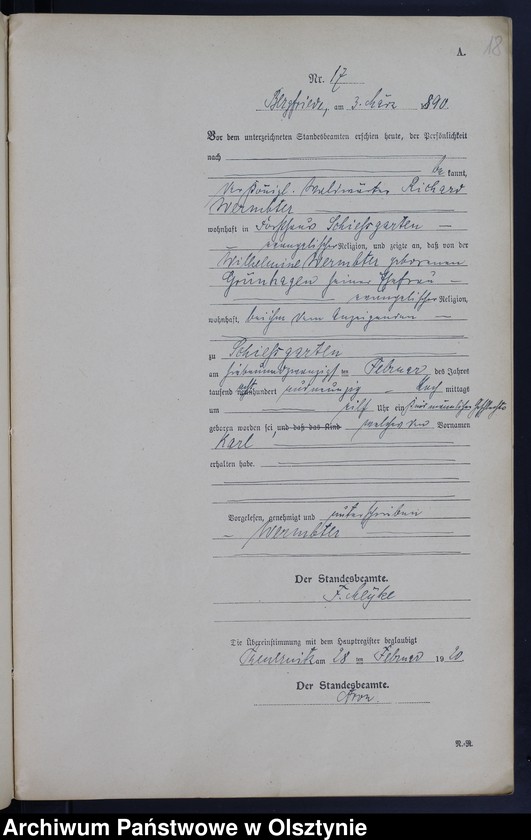 18
A.
Nr. 17
Bergfriede, am 3. März 1890
Vor dem unterzeichneten Standesbeamten erschien heute, der Persönlichkeit
nach
be kannt,
der Königl. Waldwärter Richard
Wermbter
wohnhaft in Forsthaus Schiessgarten
evangelischer Religion, und zeigte an, daß von der
Wilhelmine Wermbter geborenen
Grünhagen seiner Ehefrau
evangelischer Religion,
wohnhaft bei ihm dem Anzeigenden
zu Schiessgarten
am siebenundzwanzigsten Februar des Jahres
tausend achthundert und neunzig Nach mittags
um eilf Uhr ein Kind männlichen Geschlechts
geboren worden sei, und daß das Kind welches den Vornamen
Karl
erhalten habe.
Vorgelesen, genehmigt und unterschrieben
Wermbter
Der Standesbeamte.
F.
Die Übereinstimmung mit dem Hauptregister beglaubigt
am 28 ten Februar 1920
Der Standesbeamte.
N.-R.
Archiwum Państwowe w Olsztynie